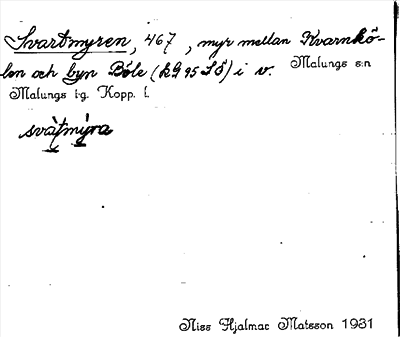 Svartmyren, 467, myr mellan Kvarnkö-
len och byn Böle (RG 95 SÖ) i v. Malungs s:n
Malungs tg. Kopp. l.
svàtmýra
Niss Hjalmar Matsson 1931